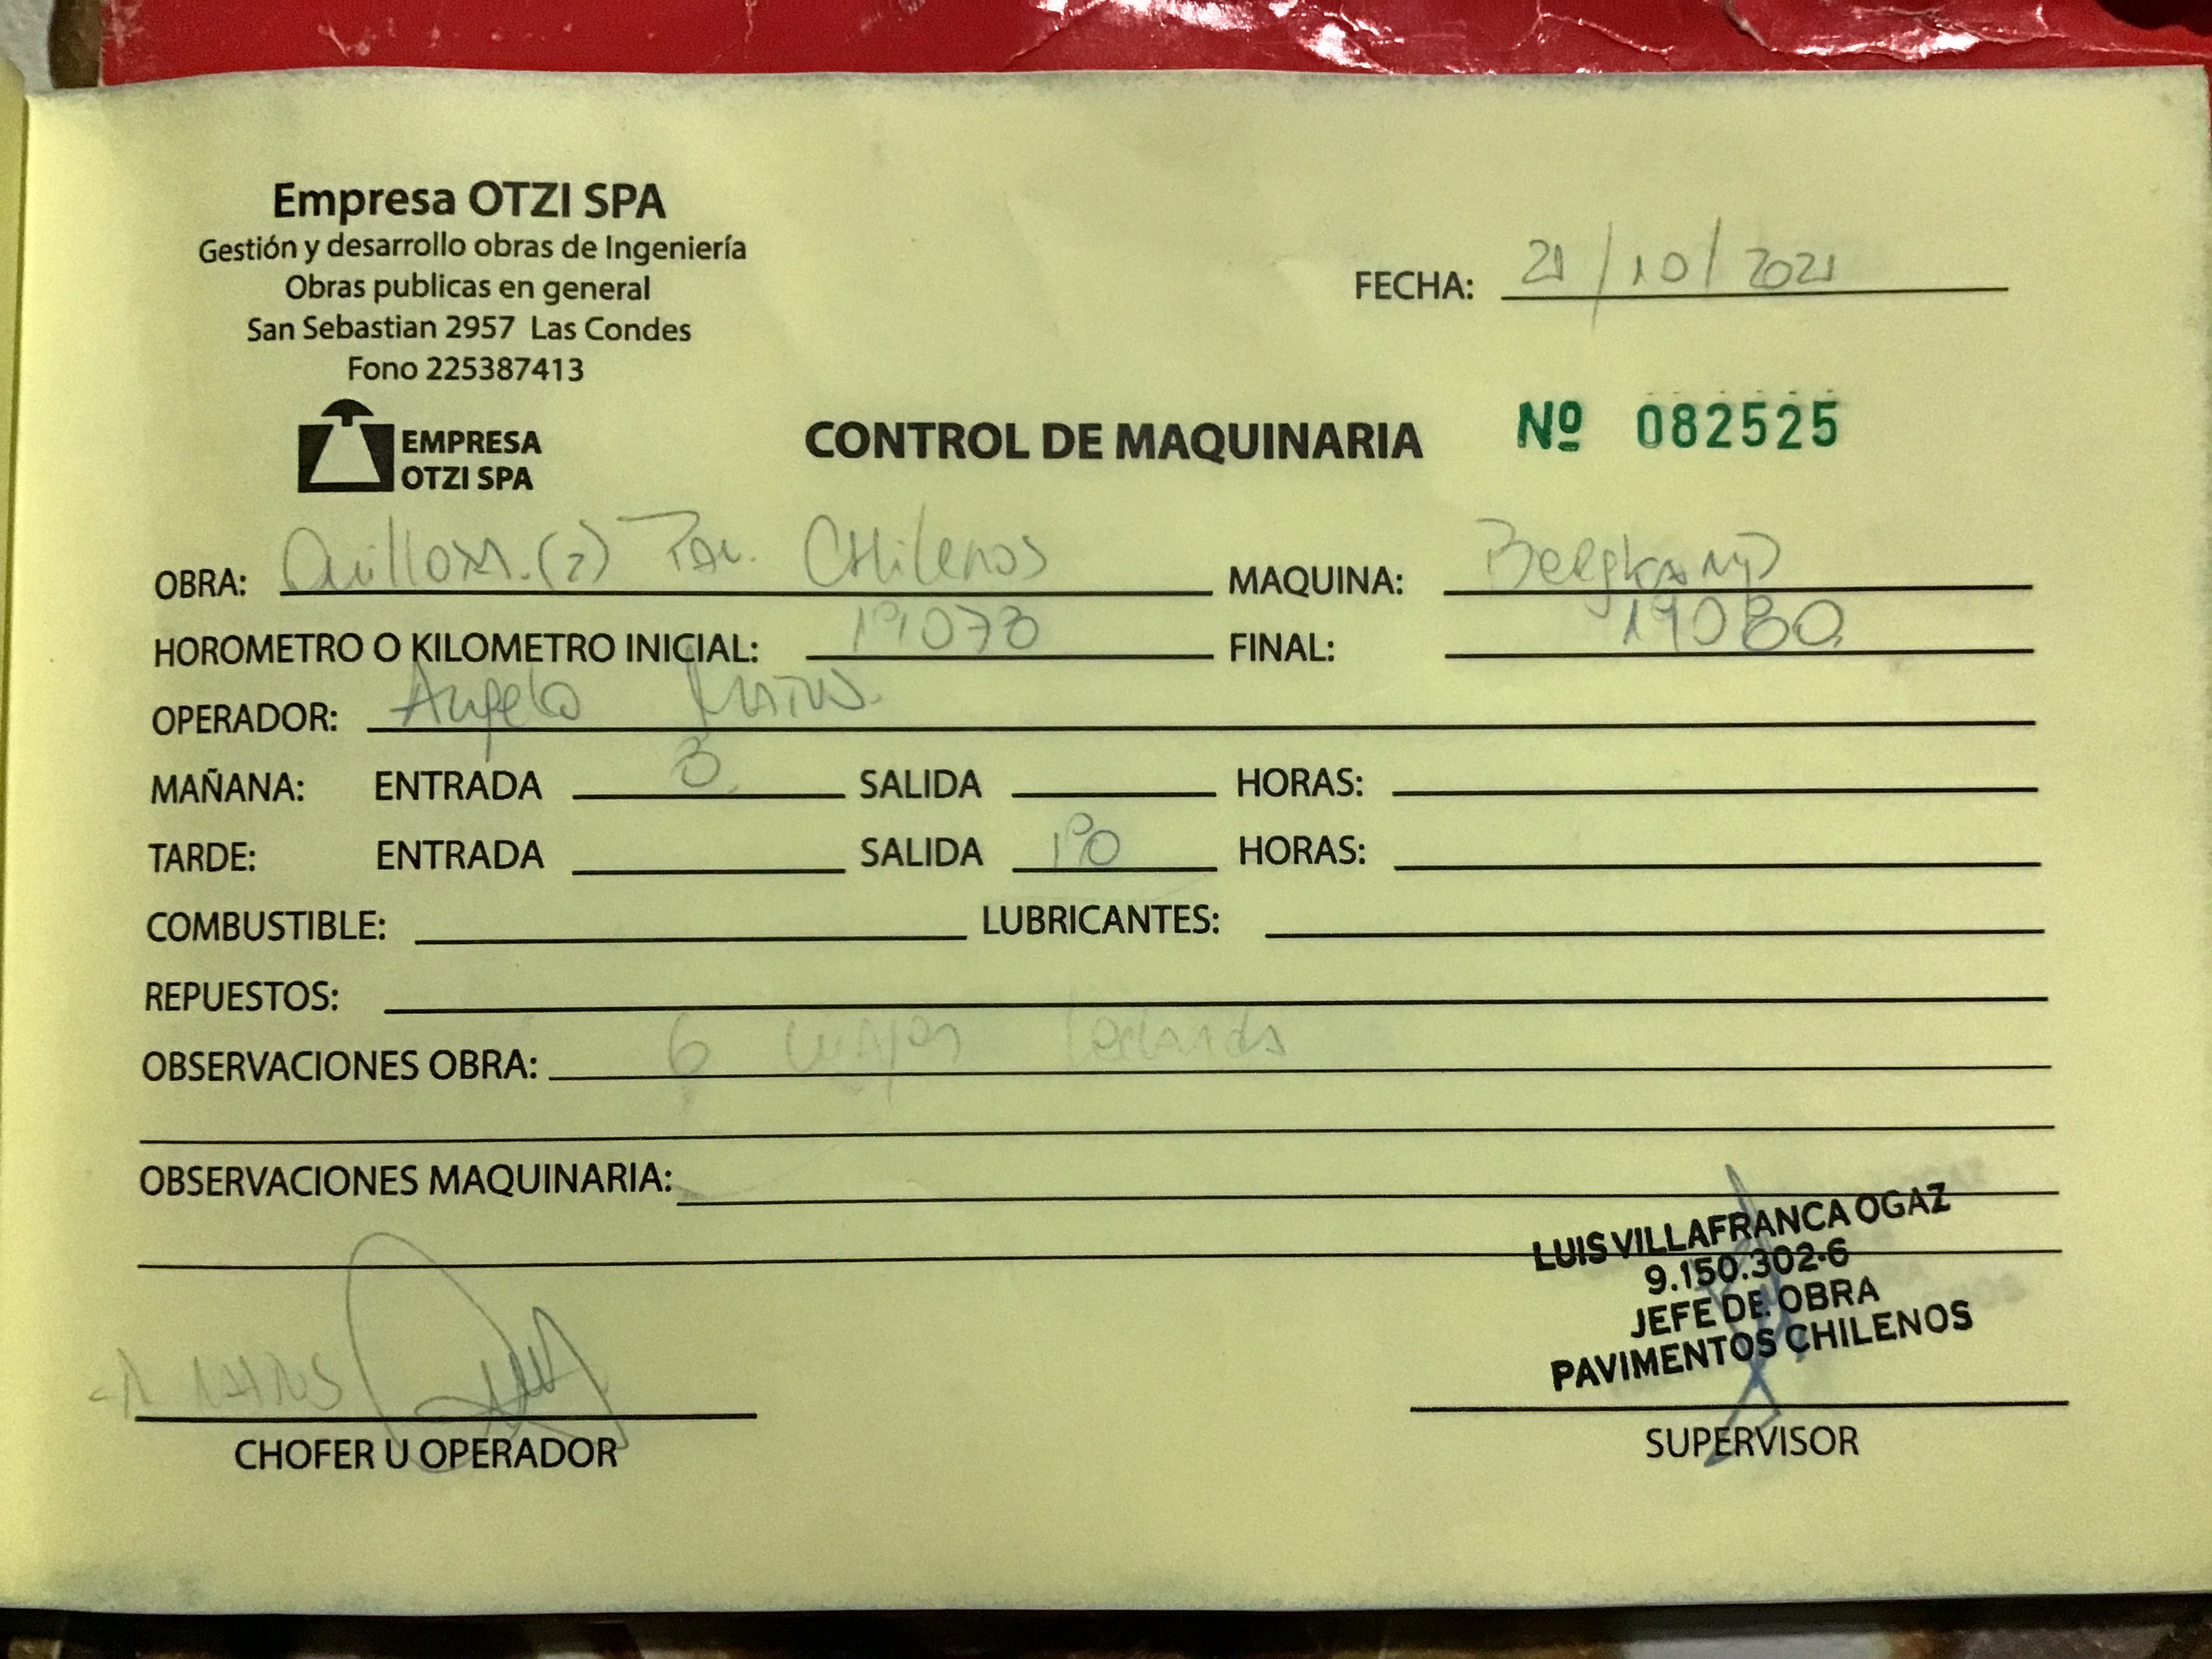 Empresa OTZI SPA
Gestión y desarrollo obras de Ingeniería
Obras publicas en general
San Sebastian 2957 Las Condes
Fono 225387413
EMPRESA
OTZI SPA
FECHA: 21/10/2021
CONTROL DE MAQUINARIA Nº 082525
OBRA: (2) Pav. CHilenos MAQUINA:
HOROMETRO O KILOMETRO INICIAL: FINAL: 19080
OPERADOR: Angelo Matus.
MAÑANA: ENTRADA SALIDA HORAS:
TARDE: ENTRADA SALIDA HORAS:
COMBUSTIBLE: LUBRICANTES:
REPUESTOS:
OBSERVACIONES OBRA: 6 viajes
OBSERVACIONES MAQUINARIA:
LUIS VILLAFRANCA OGAZ
9.150.302-6
JEFE DE OBRA
PAVIMENTOS CHILENOS
CHOFER U OPERADOR
SUPERVISOR